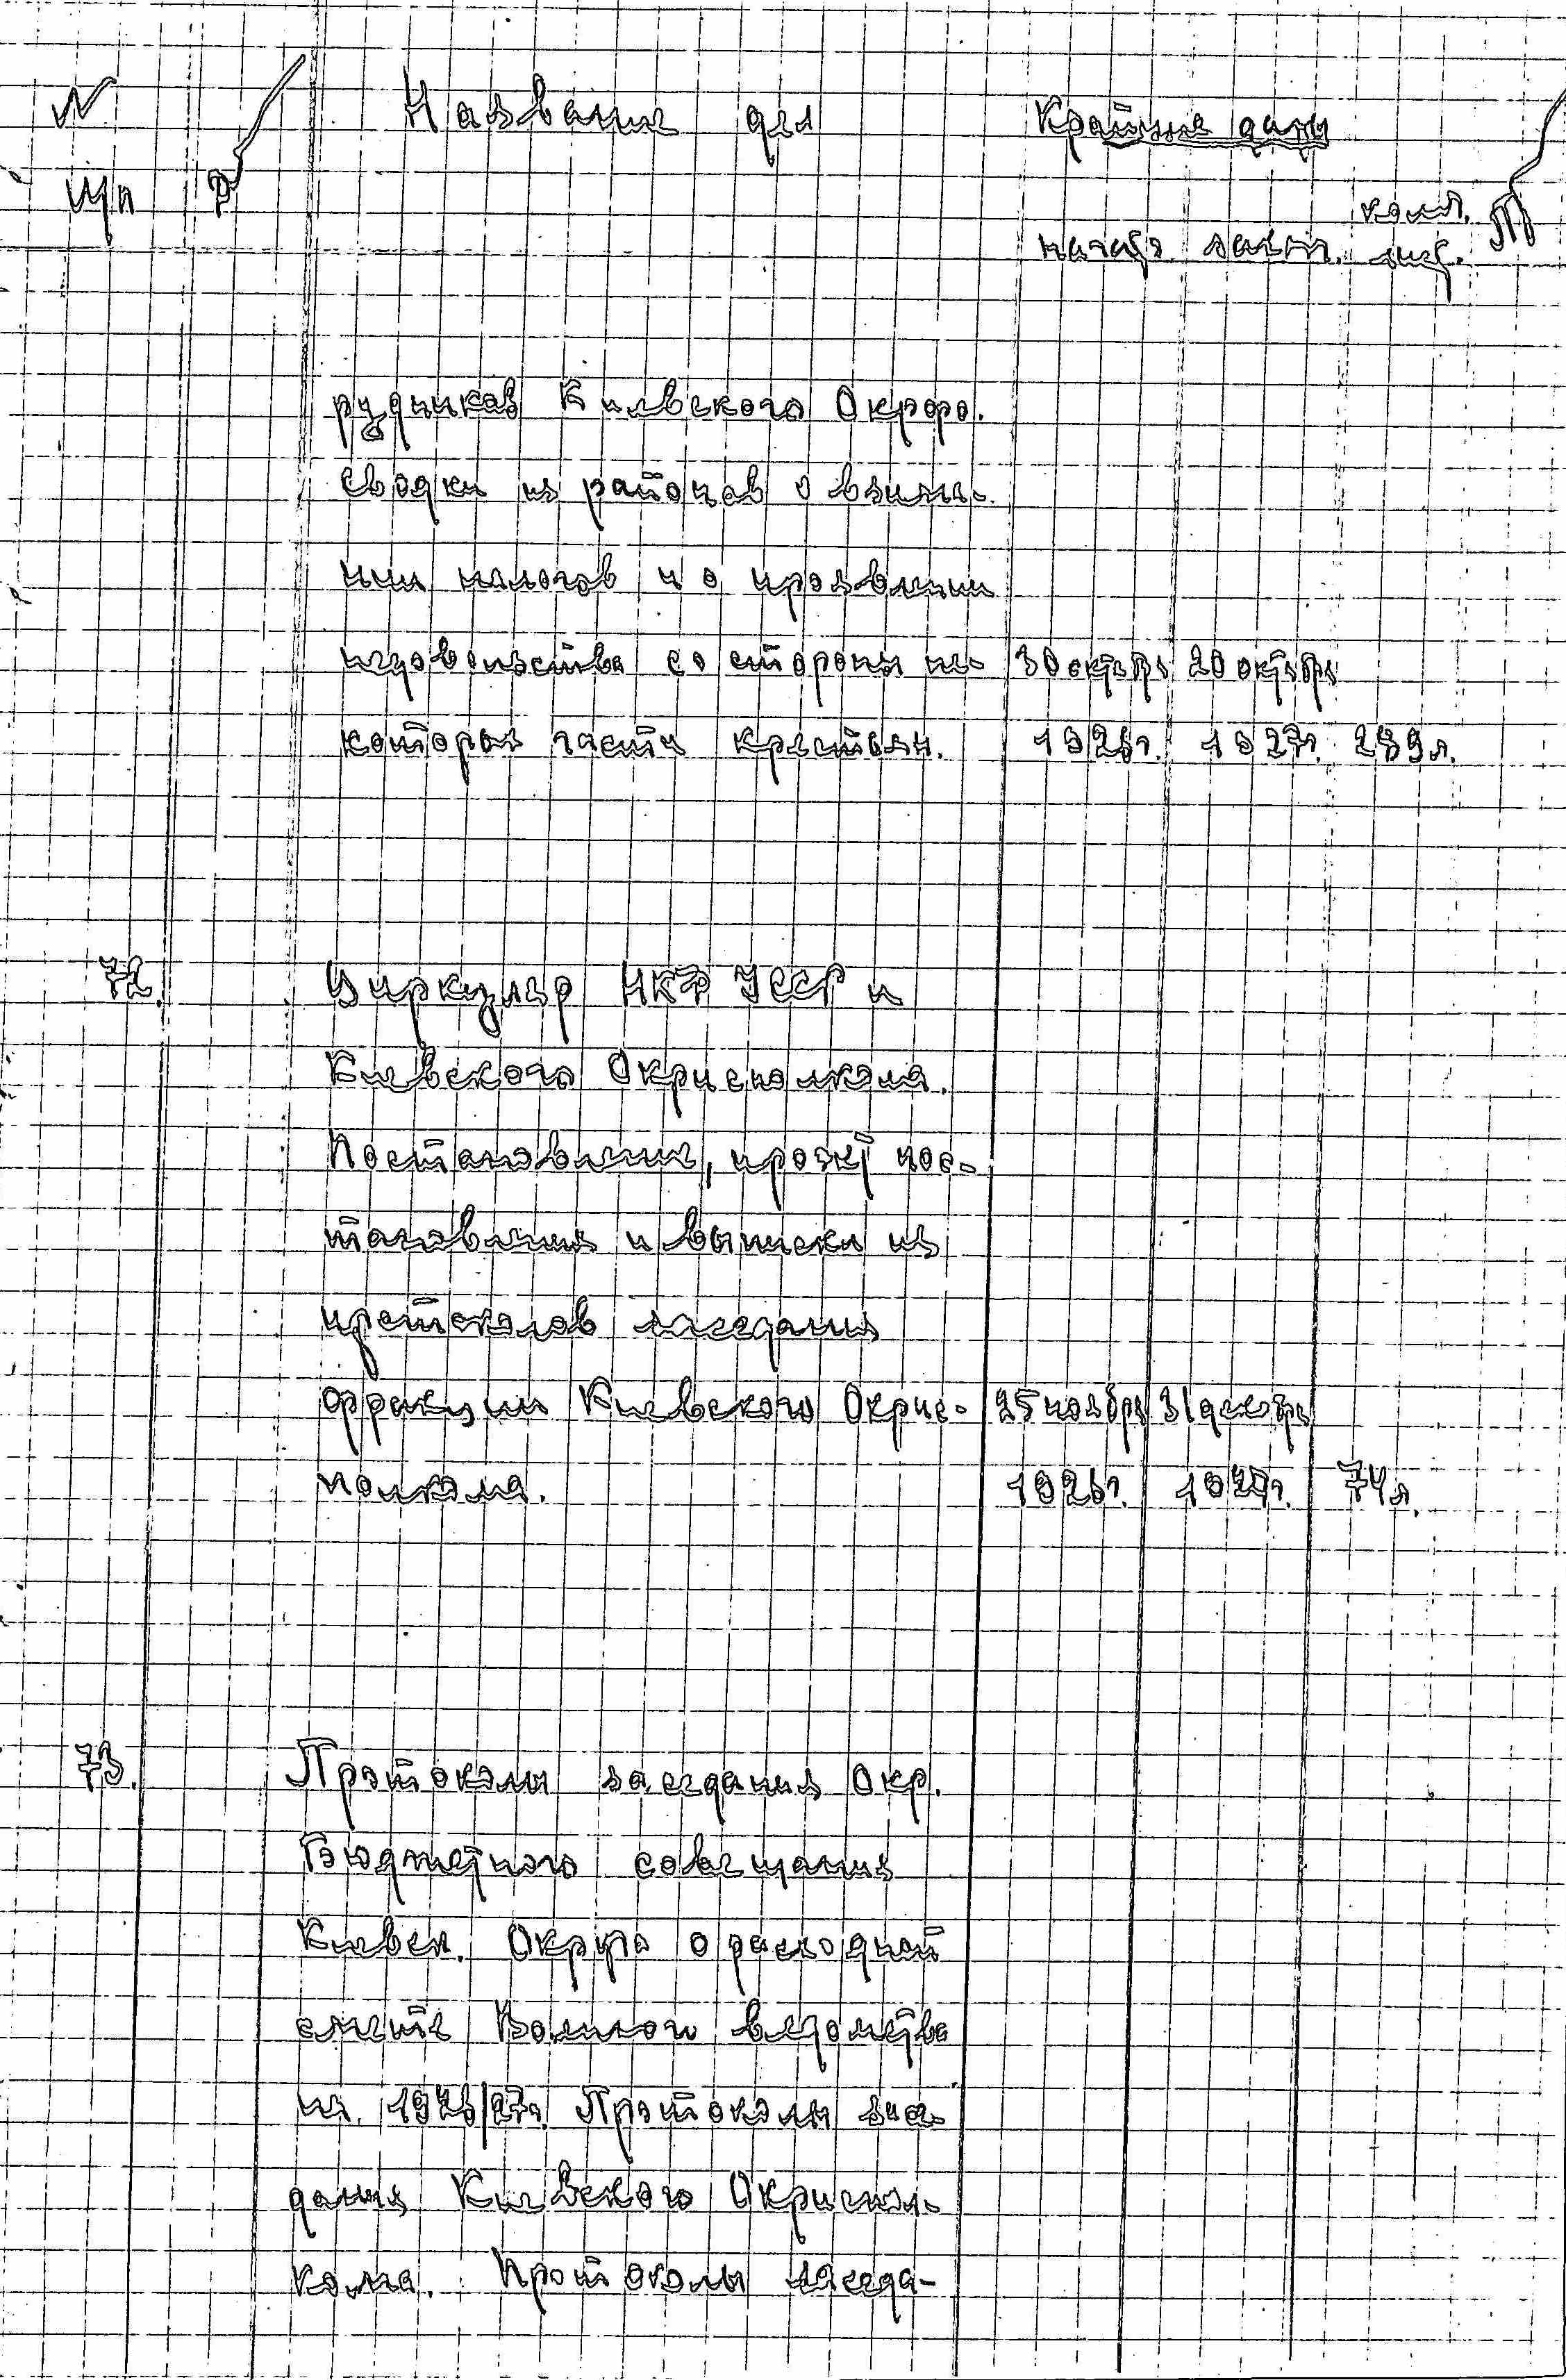 N Название дел Крайние даты
п/п Р колич.
начало закон. лист. П
рудников Киевского Окрфо.
сводки из районов о взима-
нии налогов и о проявлении
недовольства со стороны не- 30 октября 20 октября
которых части крестьян. 1926г. 1927г. 289л.
72. Циркуляр НКФ УССР и
Киевского Окрисполкома.
Постановление, проэкт пос-
тановления и выписки из
протоколов заседания
фракции Киевского Окрис- 25 ноября 31 декабря
полкома. 1926г. 1927г. 74л.
73. Протоколы заседания Окр.
Бюджетного совещания
Киевск. Округа о расходной
смете Военного ведомства
на 1926/27г. Протоколы засе-
дания Киевского Окриспол-
кома. Протоколы заседа-